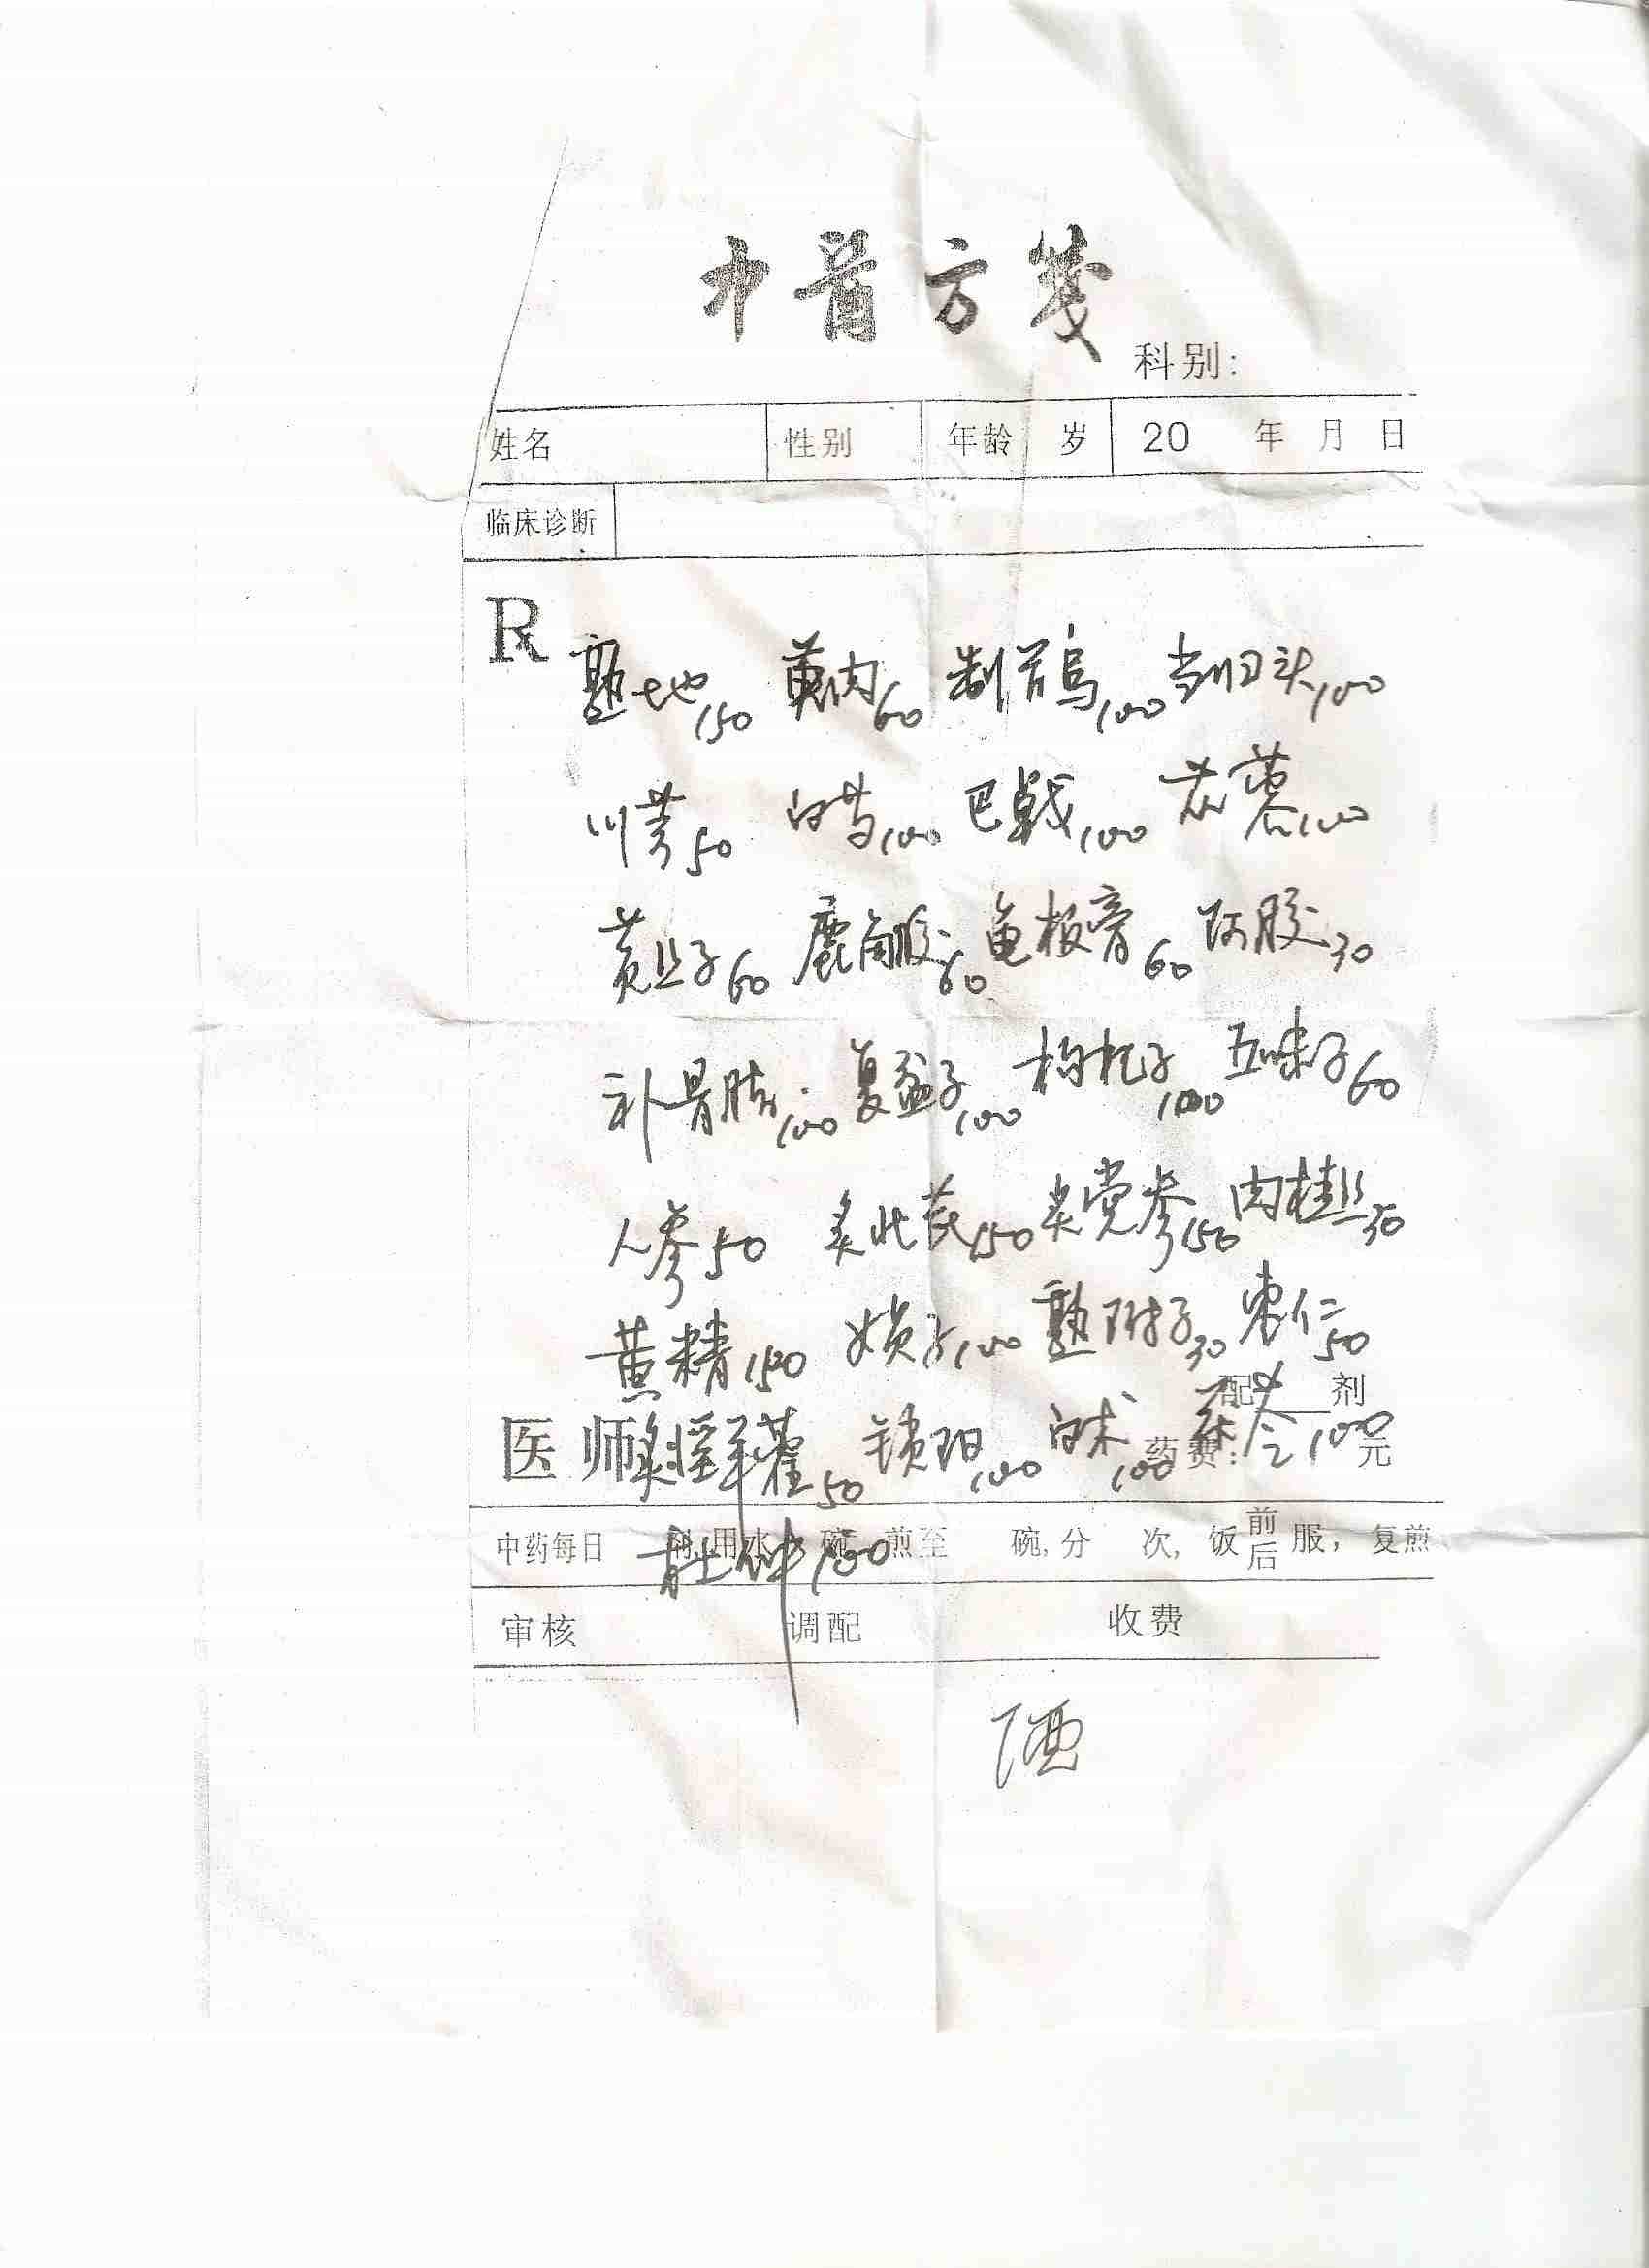 中醫方箋
科别:
姓名 性别 年龄 岁 20 年 月 日
临床诊断
R
熟地150 萸肉60 制首乌100 当归头100
川芎50 白芍100 巴戟100 苁蓉100
菟丝子60 鹿角胶60 龟板膏60 阿胶30
补骨脂100 复盆子100 枸杞子100 五味子60
人参50 炙北芪150 炙党参150 肉桂30
黄精150 女贞子100 熟附子30 枣仁50
配 剂
医师 炙淫羊藿50 锁阳100 白术100 茯苓100
药费: 元
中药每日 剂,用水 碗,煎至 碗,分 次,饭前后服,复煎
杜仲100
审核 调配 收费
酒